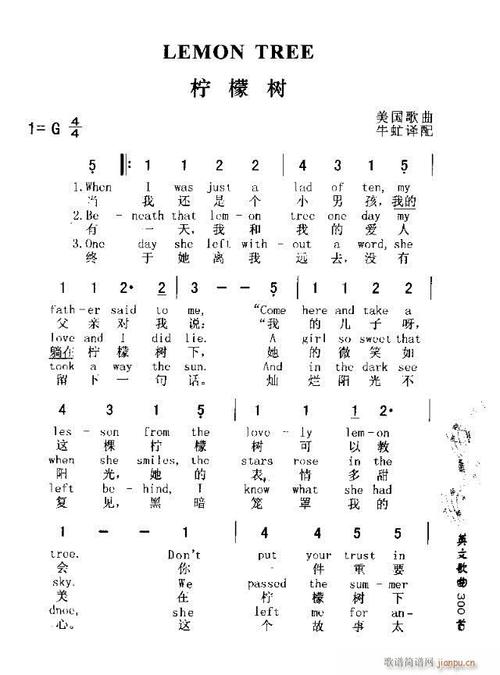 LEMON TREE
柠檬树
美国歌曲
1=G 4/4
牛虹译配
5 ‖: 1 1 2 2 | 4 3 1 5 |
1. When I was just a lad of ten, my
当 我 还 是 个 小 男 孩, 我的
2. Be - neath that lem - on tree one day my
有 一 天, 我 和 我 的 爱 人
3. One day she left with - out a word, she
终 于 她 离 我 远 去, 没 有
1 1 2· 2 | 1 - - 5 | 1 1 2 2 |
fath-er said to me, “Come here and take a
父 亲 对 我 说: “我 的 儿 子 呀,
love and I did lie. A girl so sweet that
躺在 柠 檬 树 下, 她 的 微 笑 如
took a way the sun. And in the dark see
留 下 一 句 话。 灿 烂 阳 光 不
4 3 1 5 | 1 1 1 2· |
les - son from the love - ly lem-on
这 棵 柠 檬 树 可 以 教
when she smiles, the stars rose in the
阳 光, 她 的 表, 情 多 甜
left be - hind, I know what she had
复 见, 黑 暗 笼 罩 我 的
1 - - 1 | 4 4 5 5 |
tree. Don't put your trust in
会 你 一 件 重 要
sky. We passed the sum - mer
美 在 柠 檬 树 下
dnoe, she left me for an-
心。 这 个 故 事 太
英文歌曲300首
歌谱简谱网
jianpu.cn